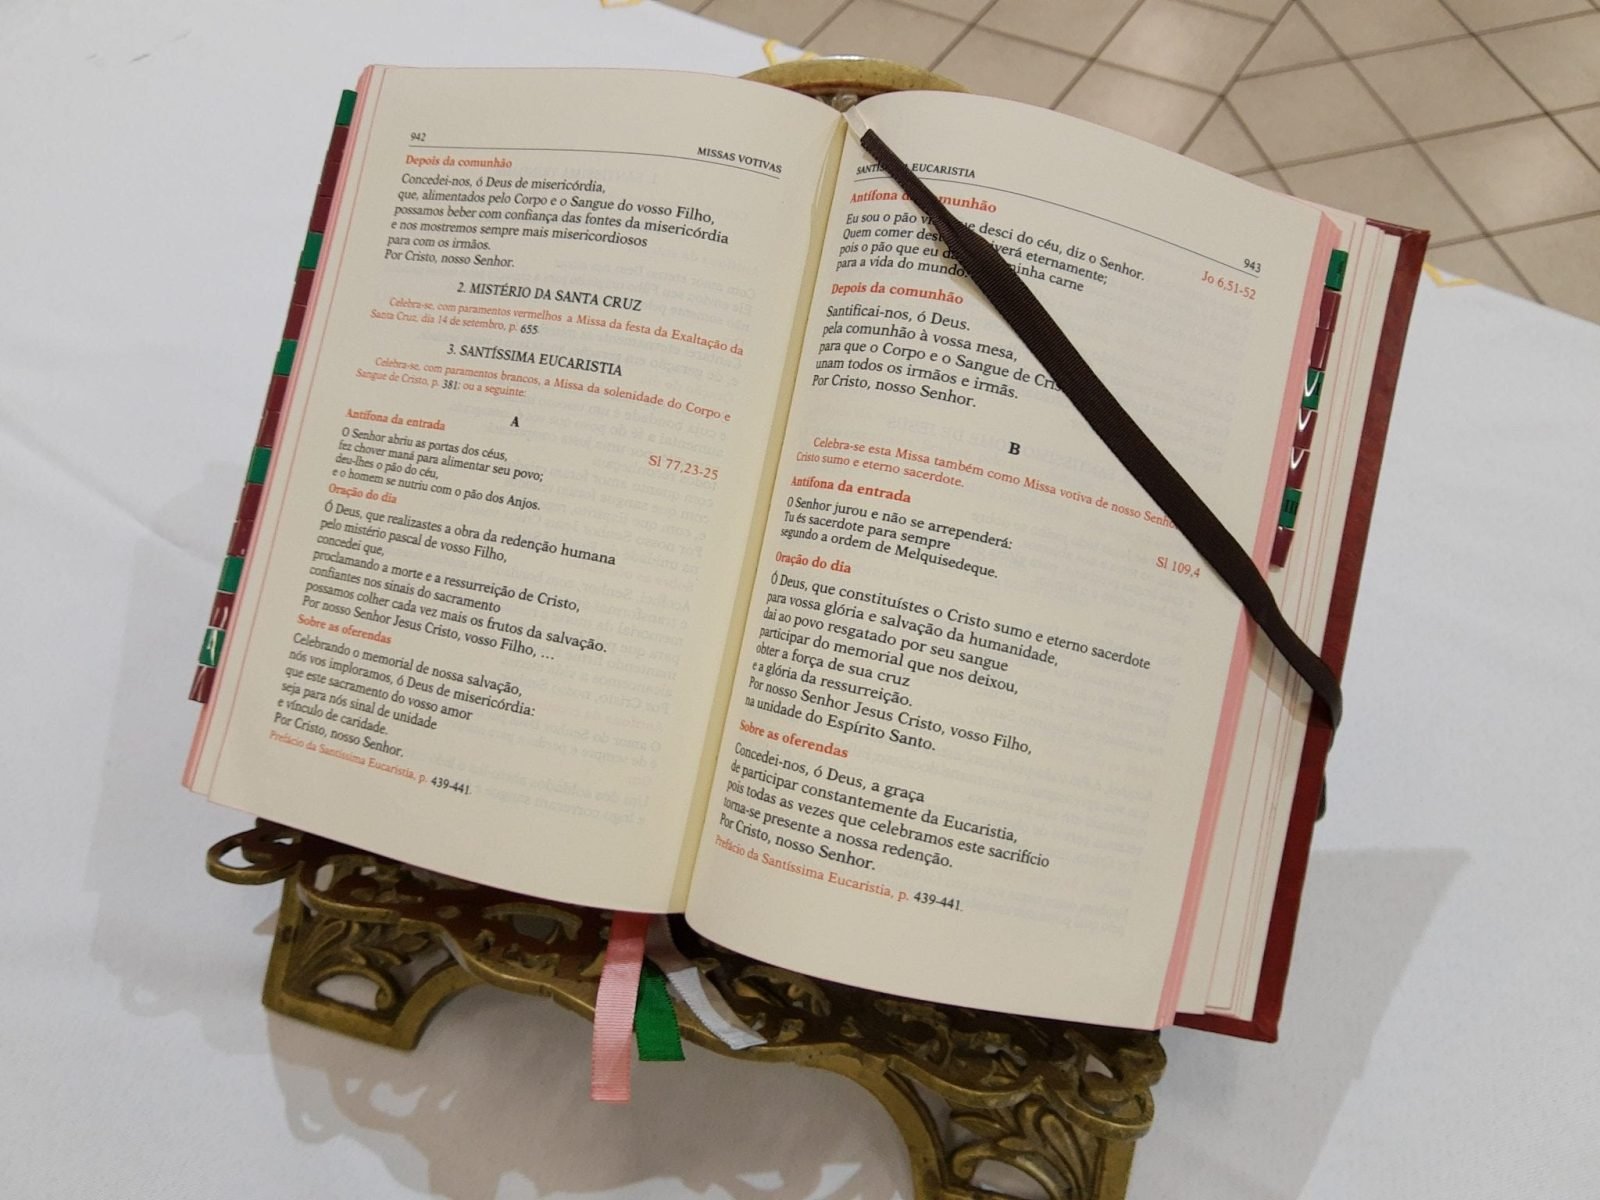 942
MISSAS VOTIVAS
Depois da comunhão
Concedei-nos, ó Deus de misericórdia,
que, alimentados pelo Corpo e o Sangue do vosso Filho,
possamos beber com confiança das fontes da misericórdia
e nos mostremos sempre mais misericordiosos
para com os irmãos.
Por Cristo, nosso Senhor.
2. MISTÉRIO DA SANTA CRUZ
Celebra-se, com paramentos vermelhos a Missa da festa da Exaltação da
Santa Cruz, dia 14 de setembro, p. 655.
3. SANTÍSSIMA EUCARISTIA
Celebra-se, com paramentos brancos, a Missa da solenidade do Corpo e
Sangue de Cristo, p. 381; ou a seguinte:
A
Antífona da entrada
Sl 77,23-25
O Senhor abriu as portas dos céus,
fez chover maná para alimentar seu povo;
deu-lhes o pão do céu,
e o homem se nutriu com o pão dos Anjos.
Oração do dia
Ó Deus, que realizastes a obra da redenção humana
pelo mistério pascal de vosso Filho,
concedei que,
proclamando a morte e a ressurreição de Cristo,
confiantes nos sinais do sacramento
possamos colher cada vez mais os frutos da salvação.
Por nosso Senhor Jesus Cristo, vosso Filho, ...
Sobre as oferendas
Celebrando o memorial de nossa salvação,
nós vos imploramos, ó Deus de misericórdia:
que este sacramento do vosso amor
seja para nós sinal de unidade
e vínculo de caridade.
Por Cristo, nosso Senhor.
Prefácio da Santíssima Eucaristia, p. 439-441.
EUCARISTIA
943
Antífona munhão
Jo 6,51-52
Eu sou o pão que desci do céu, diz o Senhor.
Quem comer viverá eternamente;
pois o pão que eu minha carne
para a vida do mundo.
Depois da comunhão
Santificai-nos, ó Deus.
pela comunhão à vossa mesa,
para que o Corpo e o Sangue de Cris
unam todos os irmãos e irmãs.
Por Cristo, nosso Senhor.
B
Celebra-se esta Missa também como Missa votiva de nosso Senho
Cristo sumo e eterno sacerdote.
Antífona da entrada
Sl 109,4
O Senhor jurou e não se arrependerá:
Tu és sacerdote para sempre
segundo a ordem de Melquisedeque.
Oração do dia
Ó Deus, que constituístes o Cristo sumo e eterno sacerdote
para vossa glória e salvação da humanidade,
dai ao povo resgatado por seu sangue
participar do memorial que nos deixou,
obter a força de sua cruz
e a glória da ressurreição.
Por nosso Senhor Jesus Cristo, vosso Filho,
na unidade do Espírito Santo.
Sobre as oferendas
Concedei-nos, ó Deus, a graça
de participar constantemente da Eucaristia,
pois todas as vezes que celebramos este sacrifício
torna-se presente a nossa redenção.
Por Cristo, nosso Senhor.
Prefácio da Santíssima Eucaristia, p. 439-441.